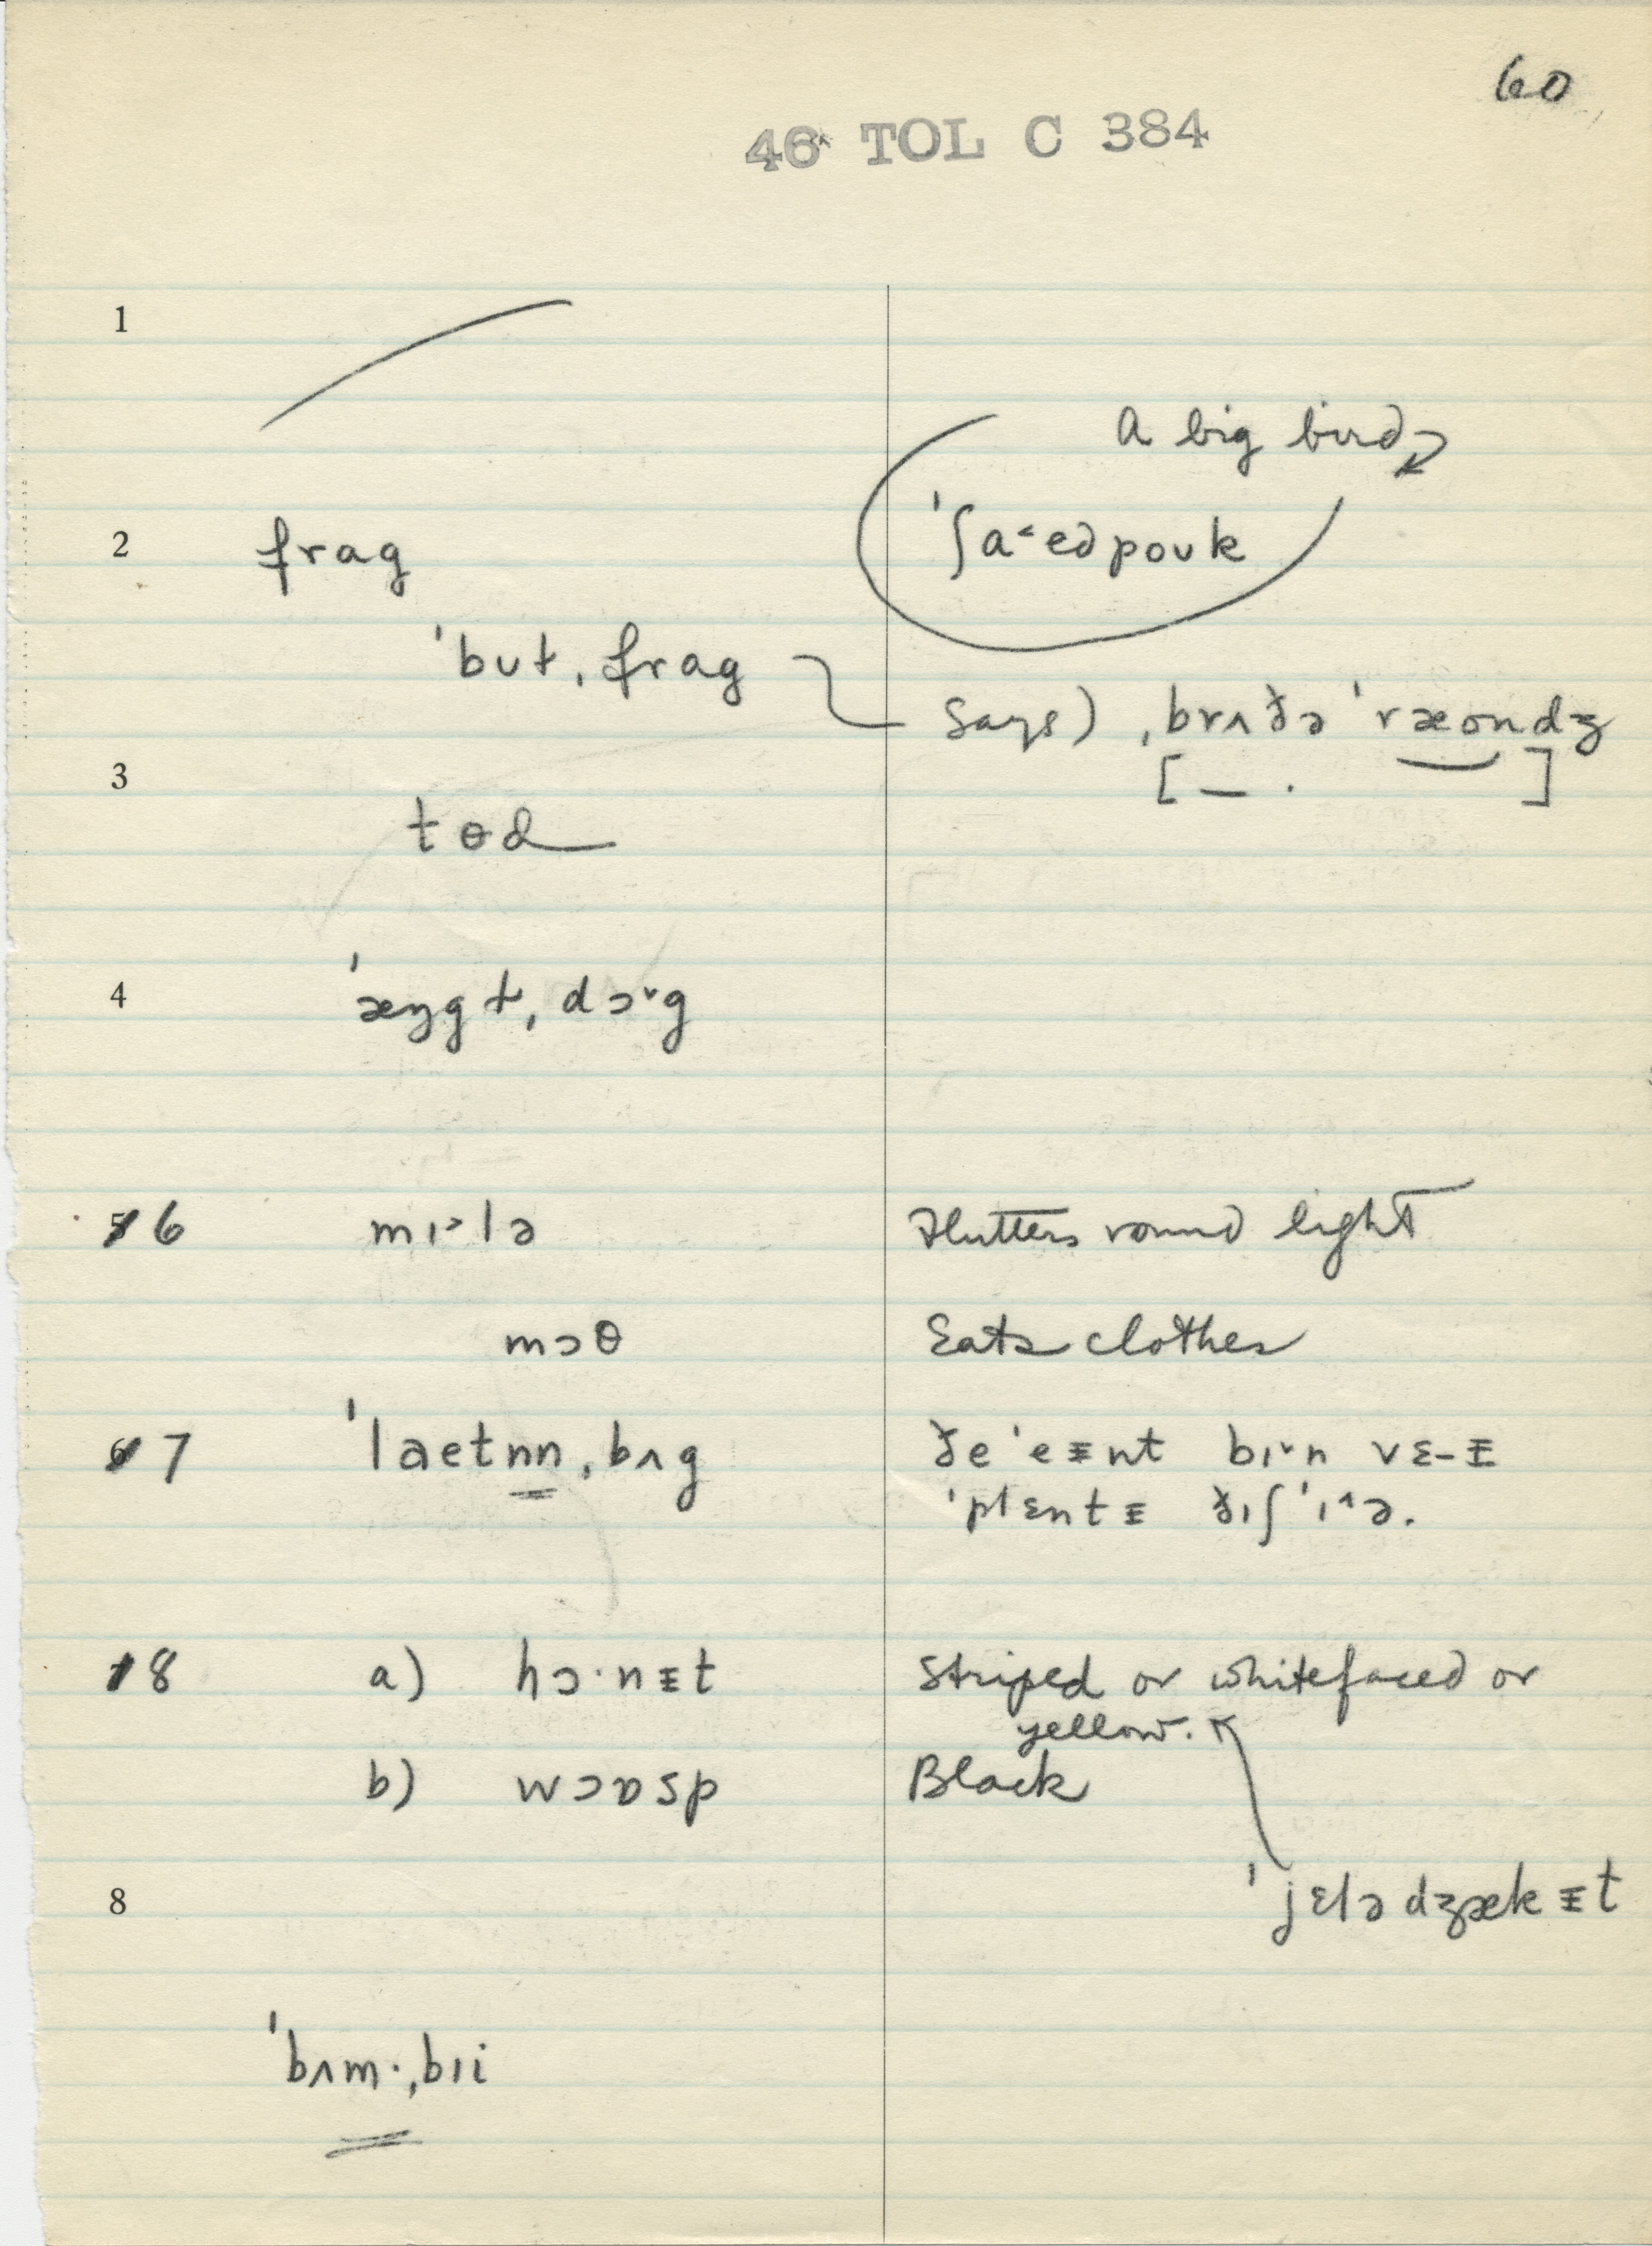 60
46 TOL C 384
1
A big bird
2 frag
ˈʃa˂ edpoʊk
ˈbʊt ˌfrag
says) ˌbrʌðə ˈræondʒ
[ — . ]
3
tɵd
4 ˈæŋgt ˌdɔ˅g
5 6 mɪ˃lə Flutters round light
mɔθ Eats clothes
6 7 ˈlaetnn ˌbʌg ðe ˈeᵻnt bɪ˅n vɛ-ᵻ
ˈplɛntᵻ ðɪʃ ˈɪ˄ə.
7 8 a) hɔ·nᵻt Striped or whitefaced or
yellow.
b) wɔɒsp Black
8 ˈjɛlə dʒækᵻt
ˈbʌm· ˌbɪi